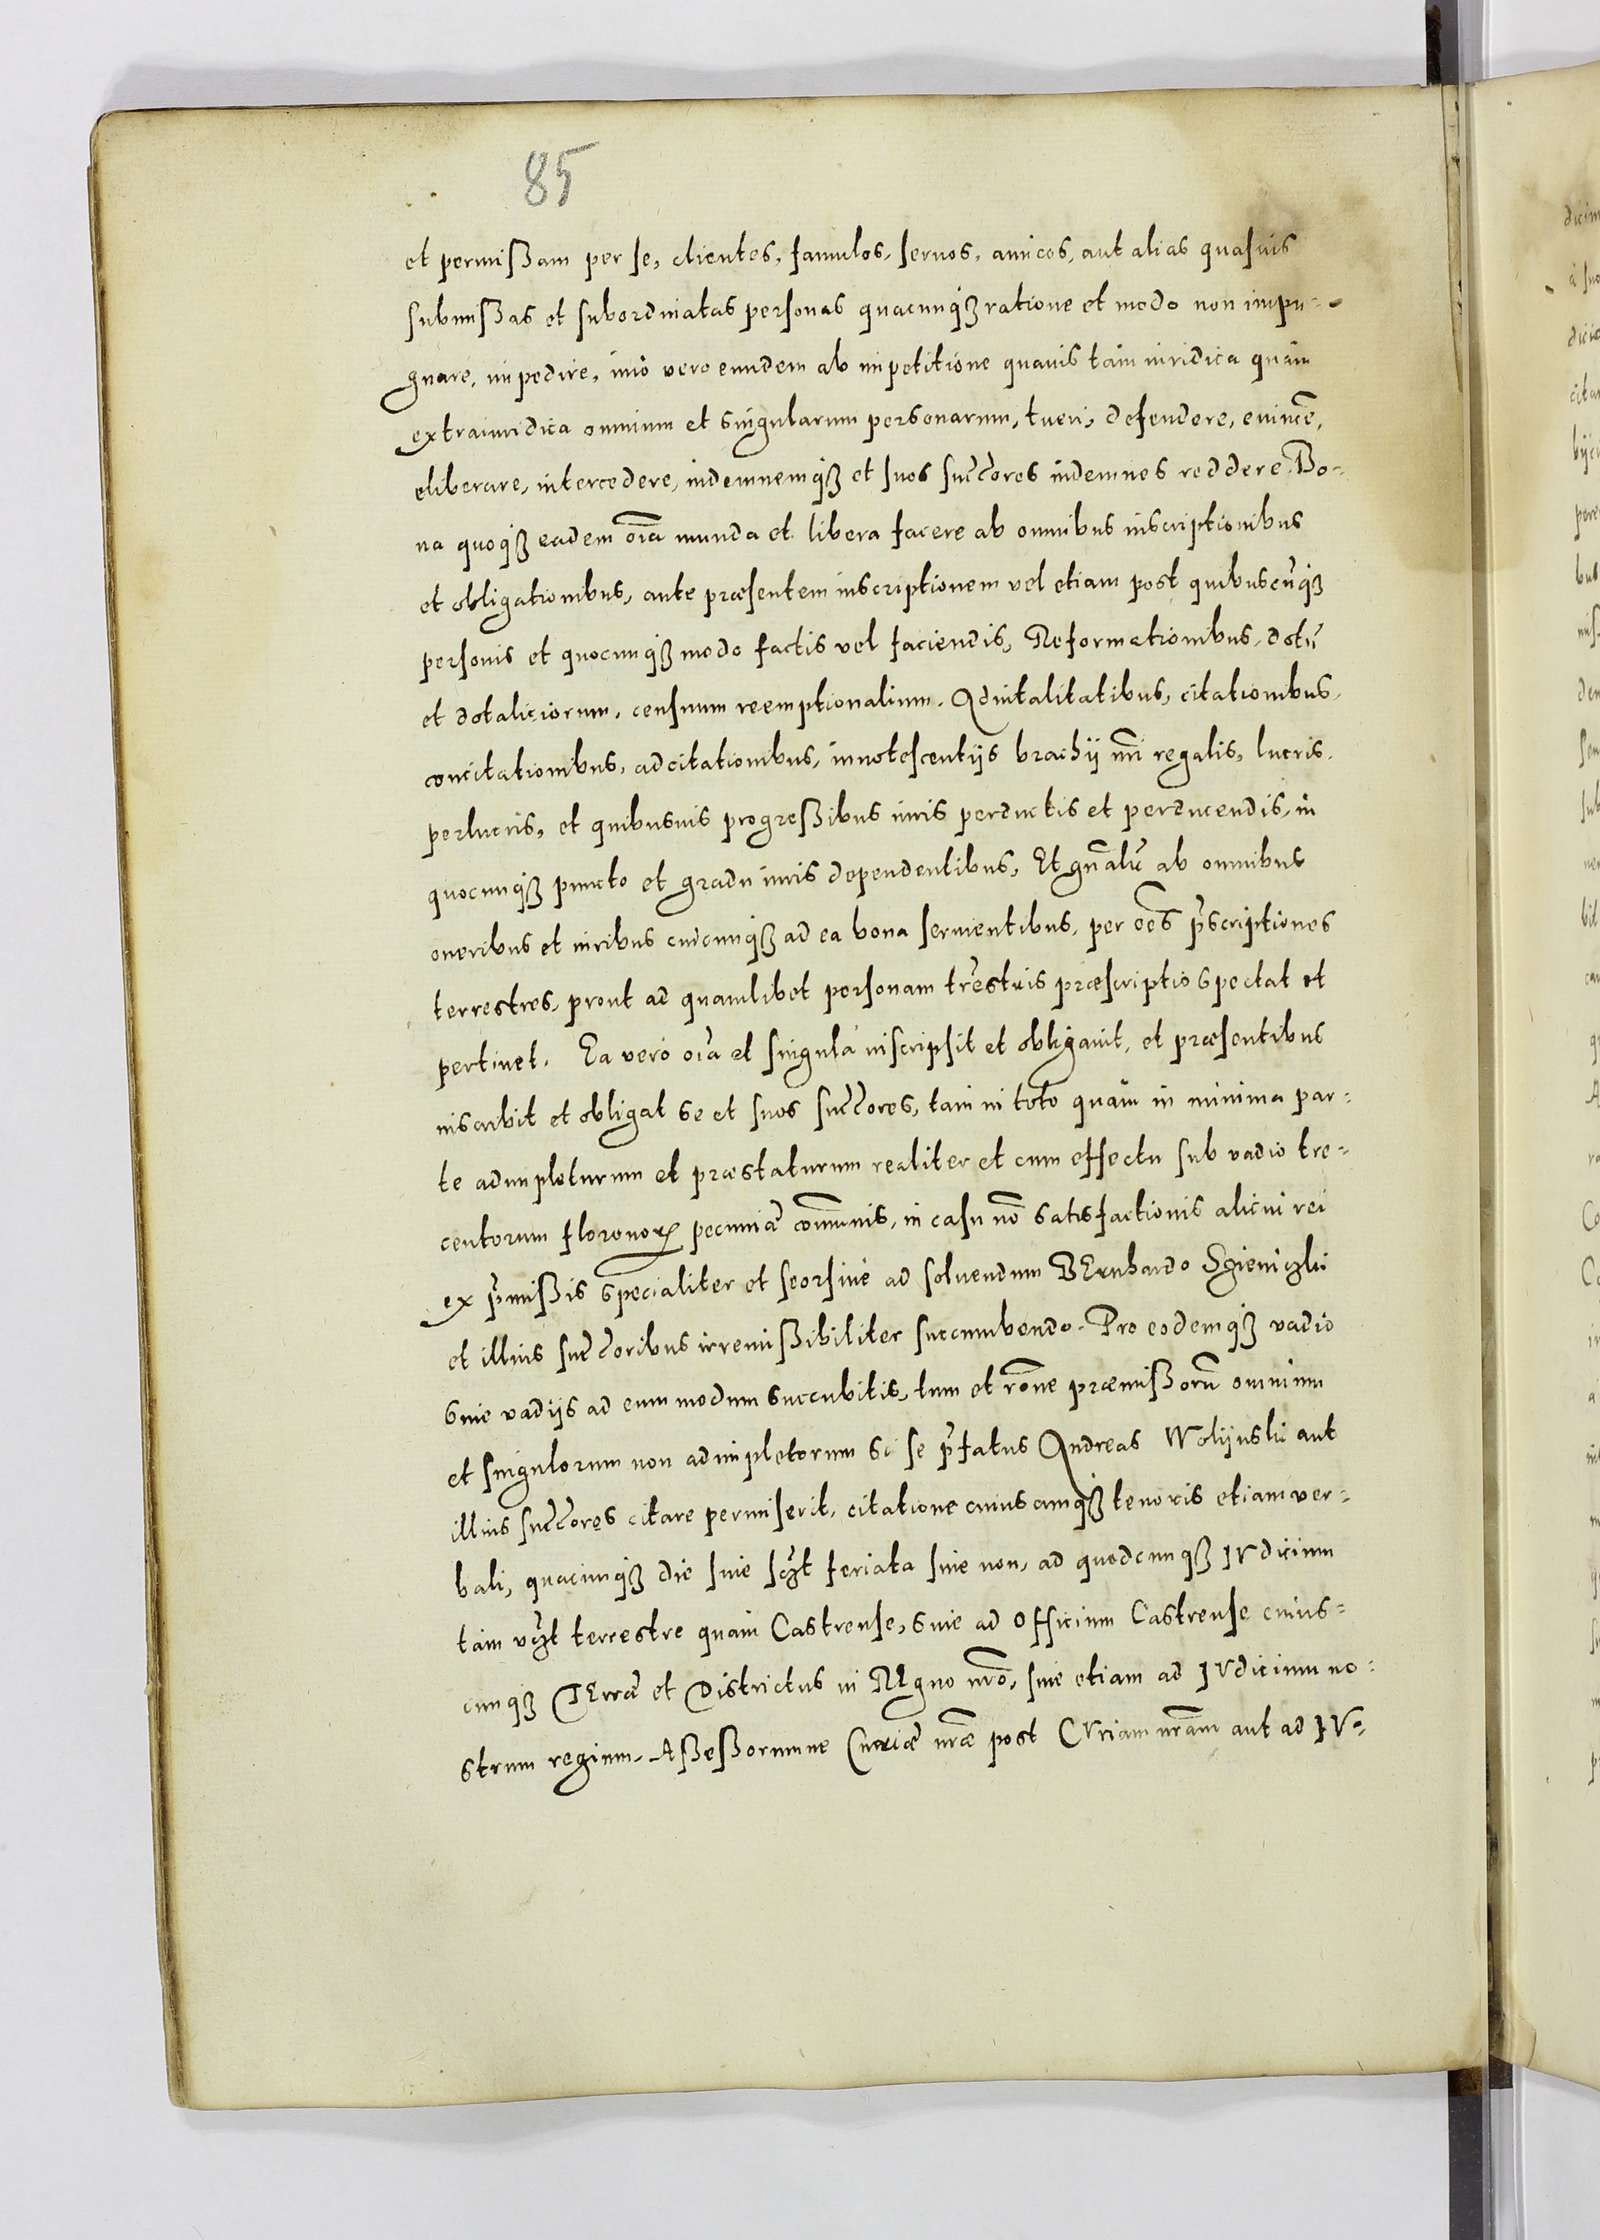 85
et permißam per se, clientes, famulos, seruos, amicos, aut alias quasuis
submißas et subordinatas personas quacunq3 ratione et modo non impu-
gnare, impedire, imo vero eundem ab impetitione quauis tam iuridica quam
extraiuridica omnium et singularum personarum, tueri, defendere, euincẽ,
eliberare, intercedere, indemnemq3 et suos succores indemnes reddere. Bo-
na quoq3 eadem oĩa munda et libera facere ab omnibus inscriptionibus
et obligationibus, ante præsentem inscriptionem vel etiam post quibuscũq3
personis et quocunq3 modo factis vel faciendis, Reformationibus, dotũ
et dotaliciorum, censuum reemptionalium. Aduitalitatibus, citationibus,
concitationibus, adcitationibus, innotescentijs brachij nrĩ regalis, lucris,
perlucris, et quibusuis progreßibus iuris perductis et perducendis, in
quocunq3 puncto et gradu iuris dependentibus, Et gñalr̃ ab omnibus
oneribus et iuribus cuicunq3 ad ea bona seruientibus, per oẽs p̃scriptiones
terrestres, prout ad quamlibet personam trẽstris præscriptio spectat et
pertinet. Ea vero oĩa et singula inscripsit et obligauit, et præsentibus
inscribit et obligat se et suos succores, tam in toto quam in minima par-
te adimpleturum et præstaturum realiter et cum effectu sub vadio tre-
centorum florenorꝝ pecuniæ com̃unis, in casu nõ satisfactionis alicui rei
ex p̃mißis specialiter et seorsiue ad soluendum BErnhardo
et illius succoribus irremißibiliter succumbendo. Pro eodemq3 vadio
siue vadijs ad eum modum succubitis, tum et rõne præmißorũ omnium
et singulorum non adimpletorum si se p̃fatus Andreas Wolijnski aut
illius succores citare permiserit, citatione cuiuscunq3 tenoris etiam ver-
bali, quacunq3 die siue sczt feriata siue non, ad quodcunq3 IVdicium
tam vczt terrestre quam Castrense, siue ad Officium Castrense cuius-
cunq3 TErræ et Districtus in REgno nrõ, siue etiam ad IVdicium no-
strum regium, Aßeßorumue Curiæ nræ post CVriam nrãm aut ad IV-